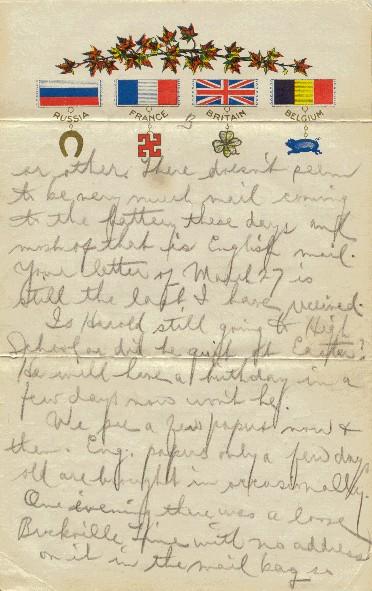 RUSSIA FRANCE BRITAIN BELGIUM
3
or other. There doesn't seem
to be very much mail coming
to the battery these days and
most of that is English mail.
Your letter of March 27 is
still the last I have received.
Is Harold still going to High
School or did he quit at Easter?
He will have a birthday in a
few days now won't he.
We see a few papers now &
then. Eng. papers only a few days
old are brought in occasionally.
One evening there was a loose
Brockville Times with no address
on it in the mail bag so